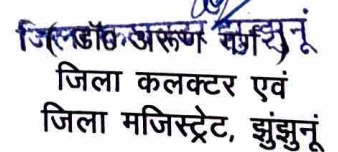 (डॉ० अरूण गर्ग)
जिला कलक्टर एवं
जिला मजिस्ट्रेट, झुंझुनूं